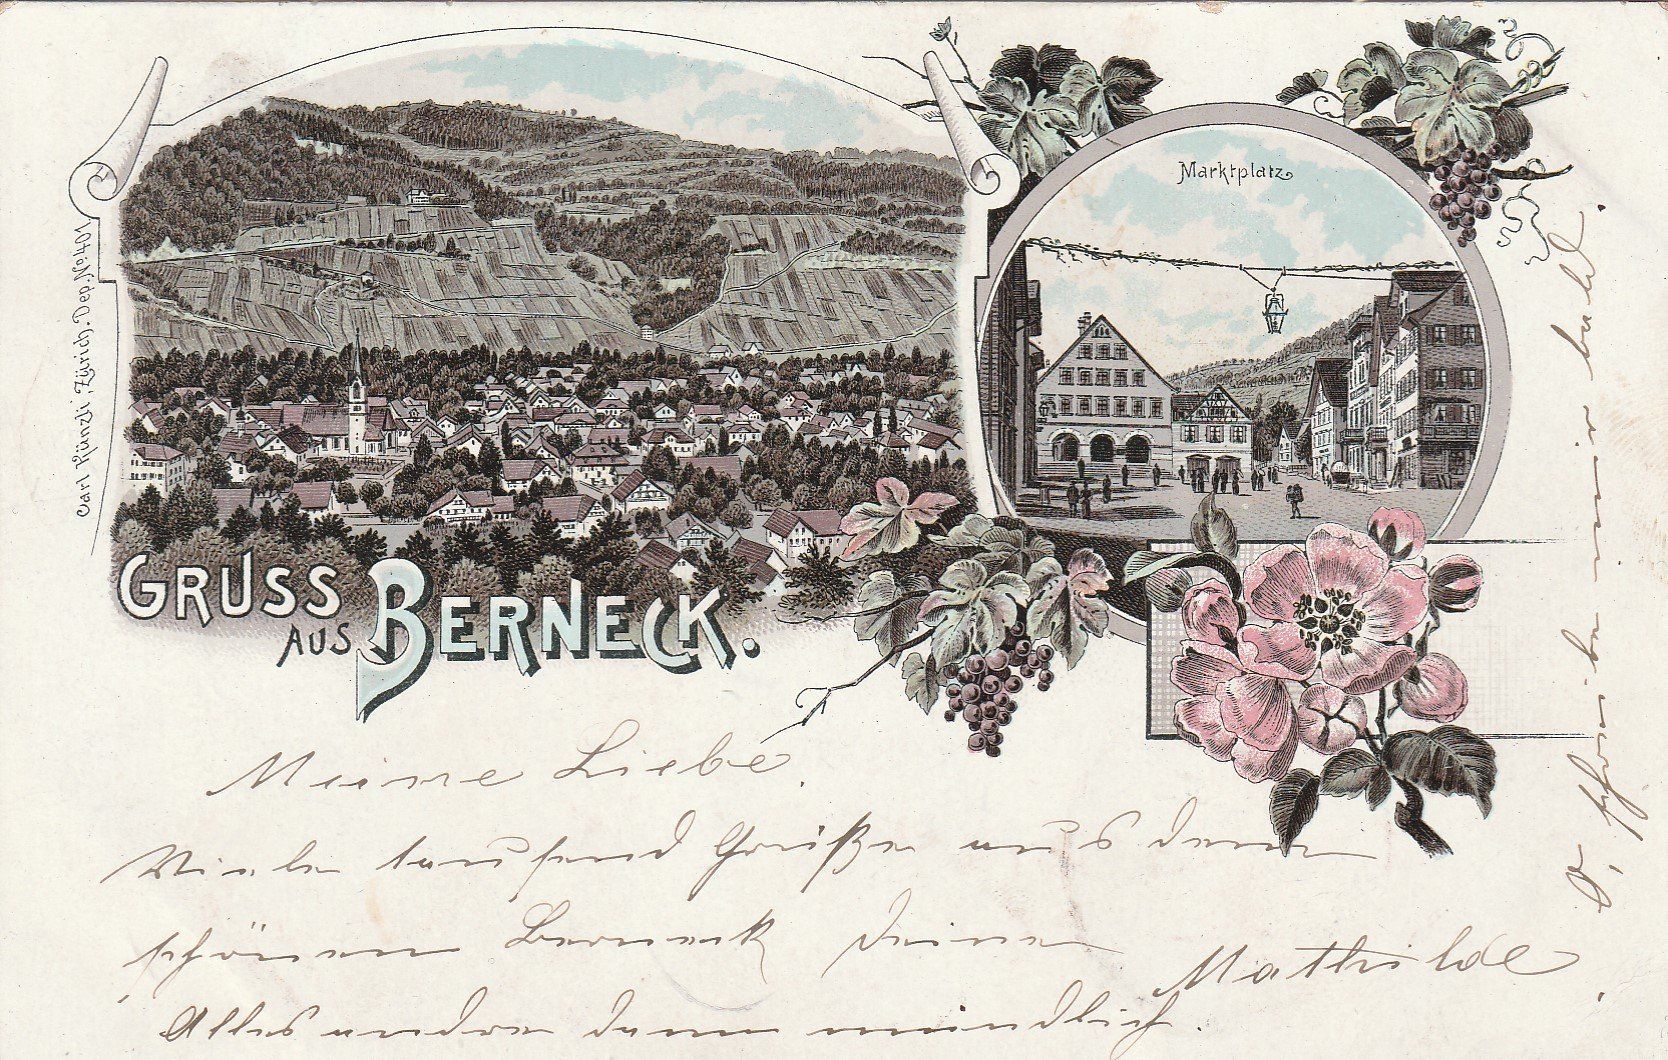 Carl Künzli, Zürich. Dep. No 401
Marktplatz
GRUSS
AUS BERNECK.
Meine Liebe.
Viele tausend Grüße aus dem
schönen Berneck Deine
Mathilde
Alles andre dann mündlich.
schreibe mir bald.